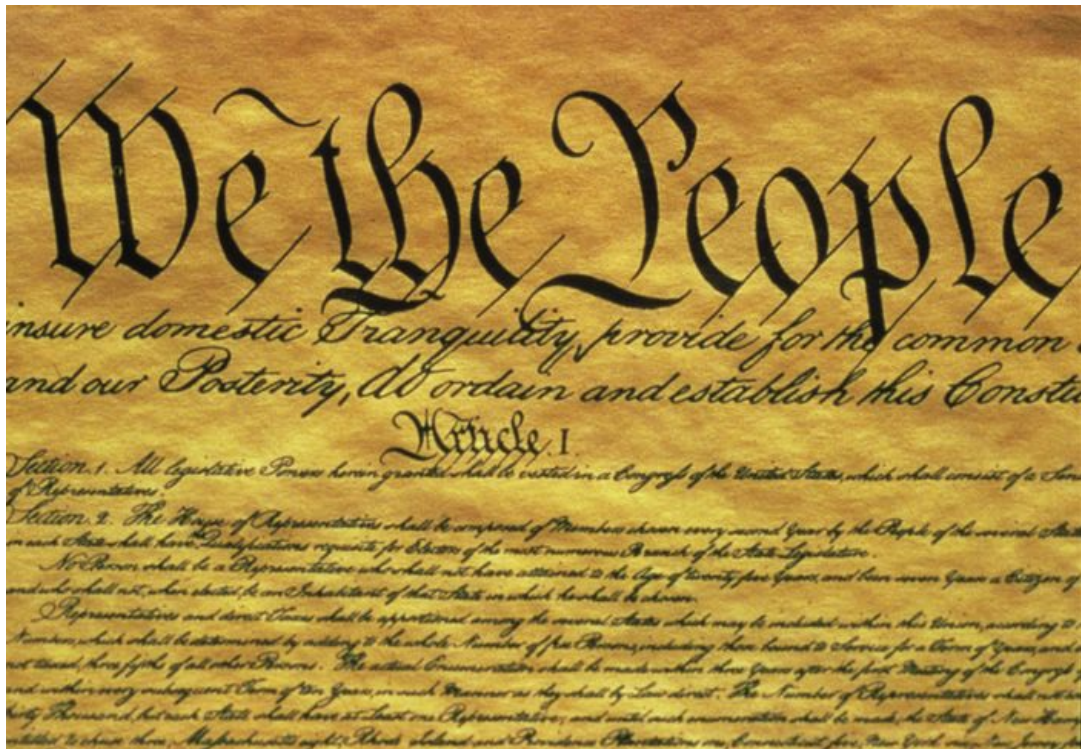 We the People
insure domestic Tranquility, provide for the common
and our Posterity, do ordain and establish this Constitu
Article. I.
Section. 1. All legislative Powers herein granted shall be vested in a Congress of the United States, which shall consist of a Sen
of Representatives.
Section. 2. The House of Representatives shall be composed of Members chosen every second Year by the People of the several States
in each State shall have Qualifications requisite for Electors of the most numerous Branch of the State Legislature.
No Person shall be a Representative who shall not have attained to the Age of twenty five Years, and been seven Years a Citizen of
and who shall not, when elected, be an Inhabitant of that State in which he shall be chosen.
Representatives and direct Taxes shall be apportioned among the several States which may be included within this Union, according to
Numbers, which shall be determined by adding to the whole Number of free Persons, including those bound to Service for a Term of Years, and
not taxed, three fifths of all other Persons. The actual Enumeration shall be made within three Years after the first Meeting of the Congress
and within every subsequent Term of ten Years, in such Manner as they shall by Law direct. The Number of Representatives shall not
thirty Thousand, but each State shall have at Least one Representative; and until such enumeration shall be made, the State of New Hamp
entitled to chuse three, Massachusetts eight, Rhode Island and Providence Plantations one, Connecticut five, New York six, New Jersey